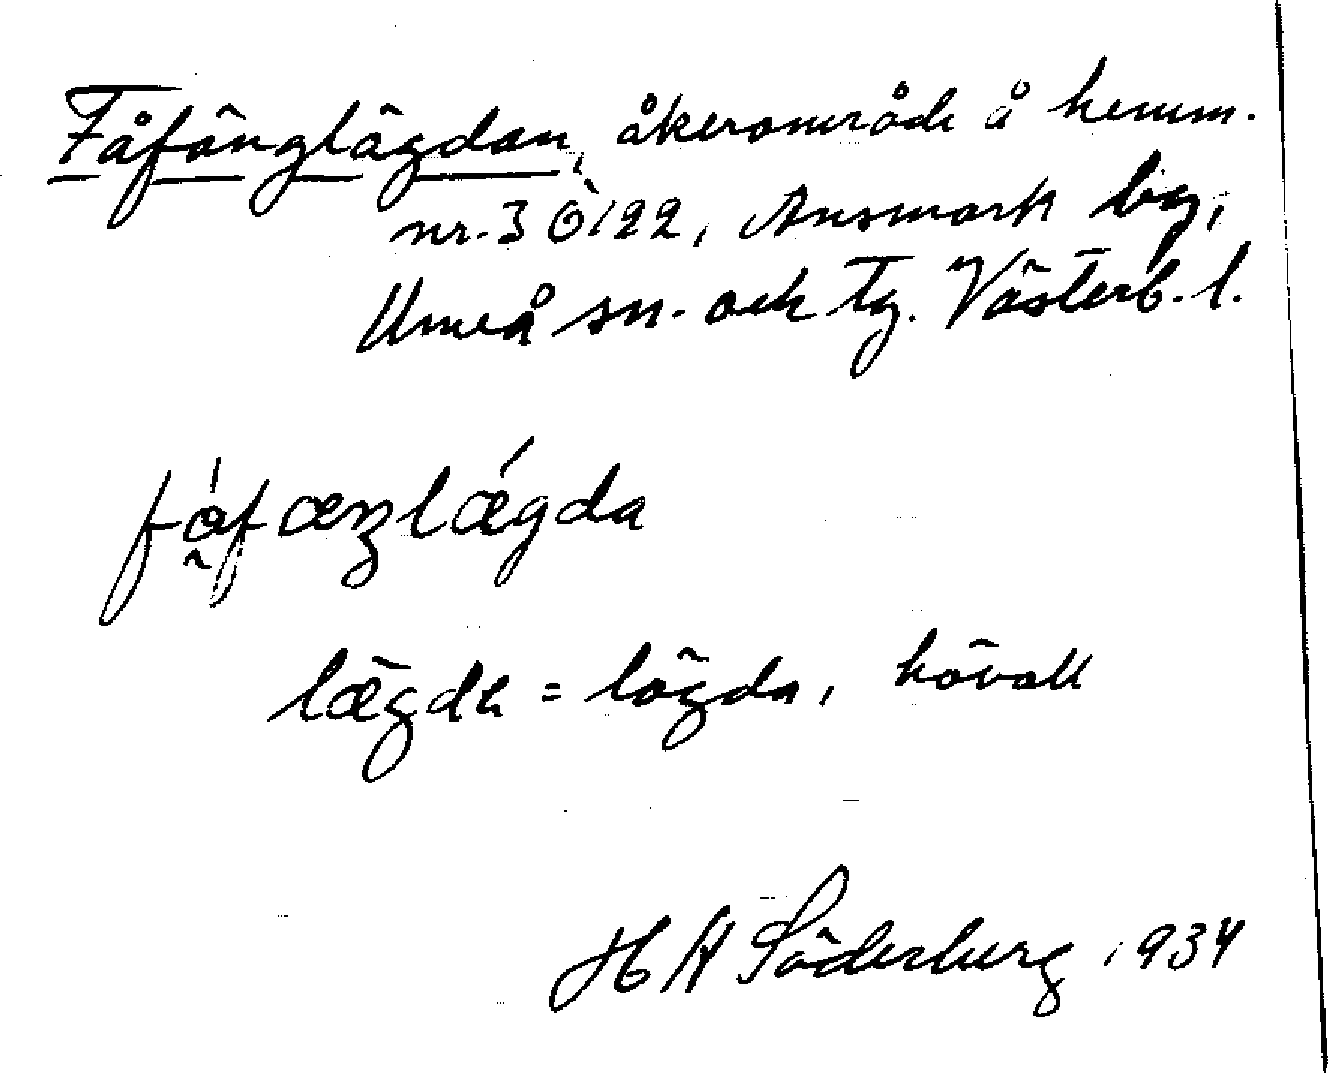 Fåfänglägdan, åkerområde å hemm.
nr. 3 Ö122, Ansmark by,
Umeå sn. och tg. Västerb. l.
fåfæŋlǽgda
lægda = lägda, hövall
H A Söderberg 1934